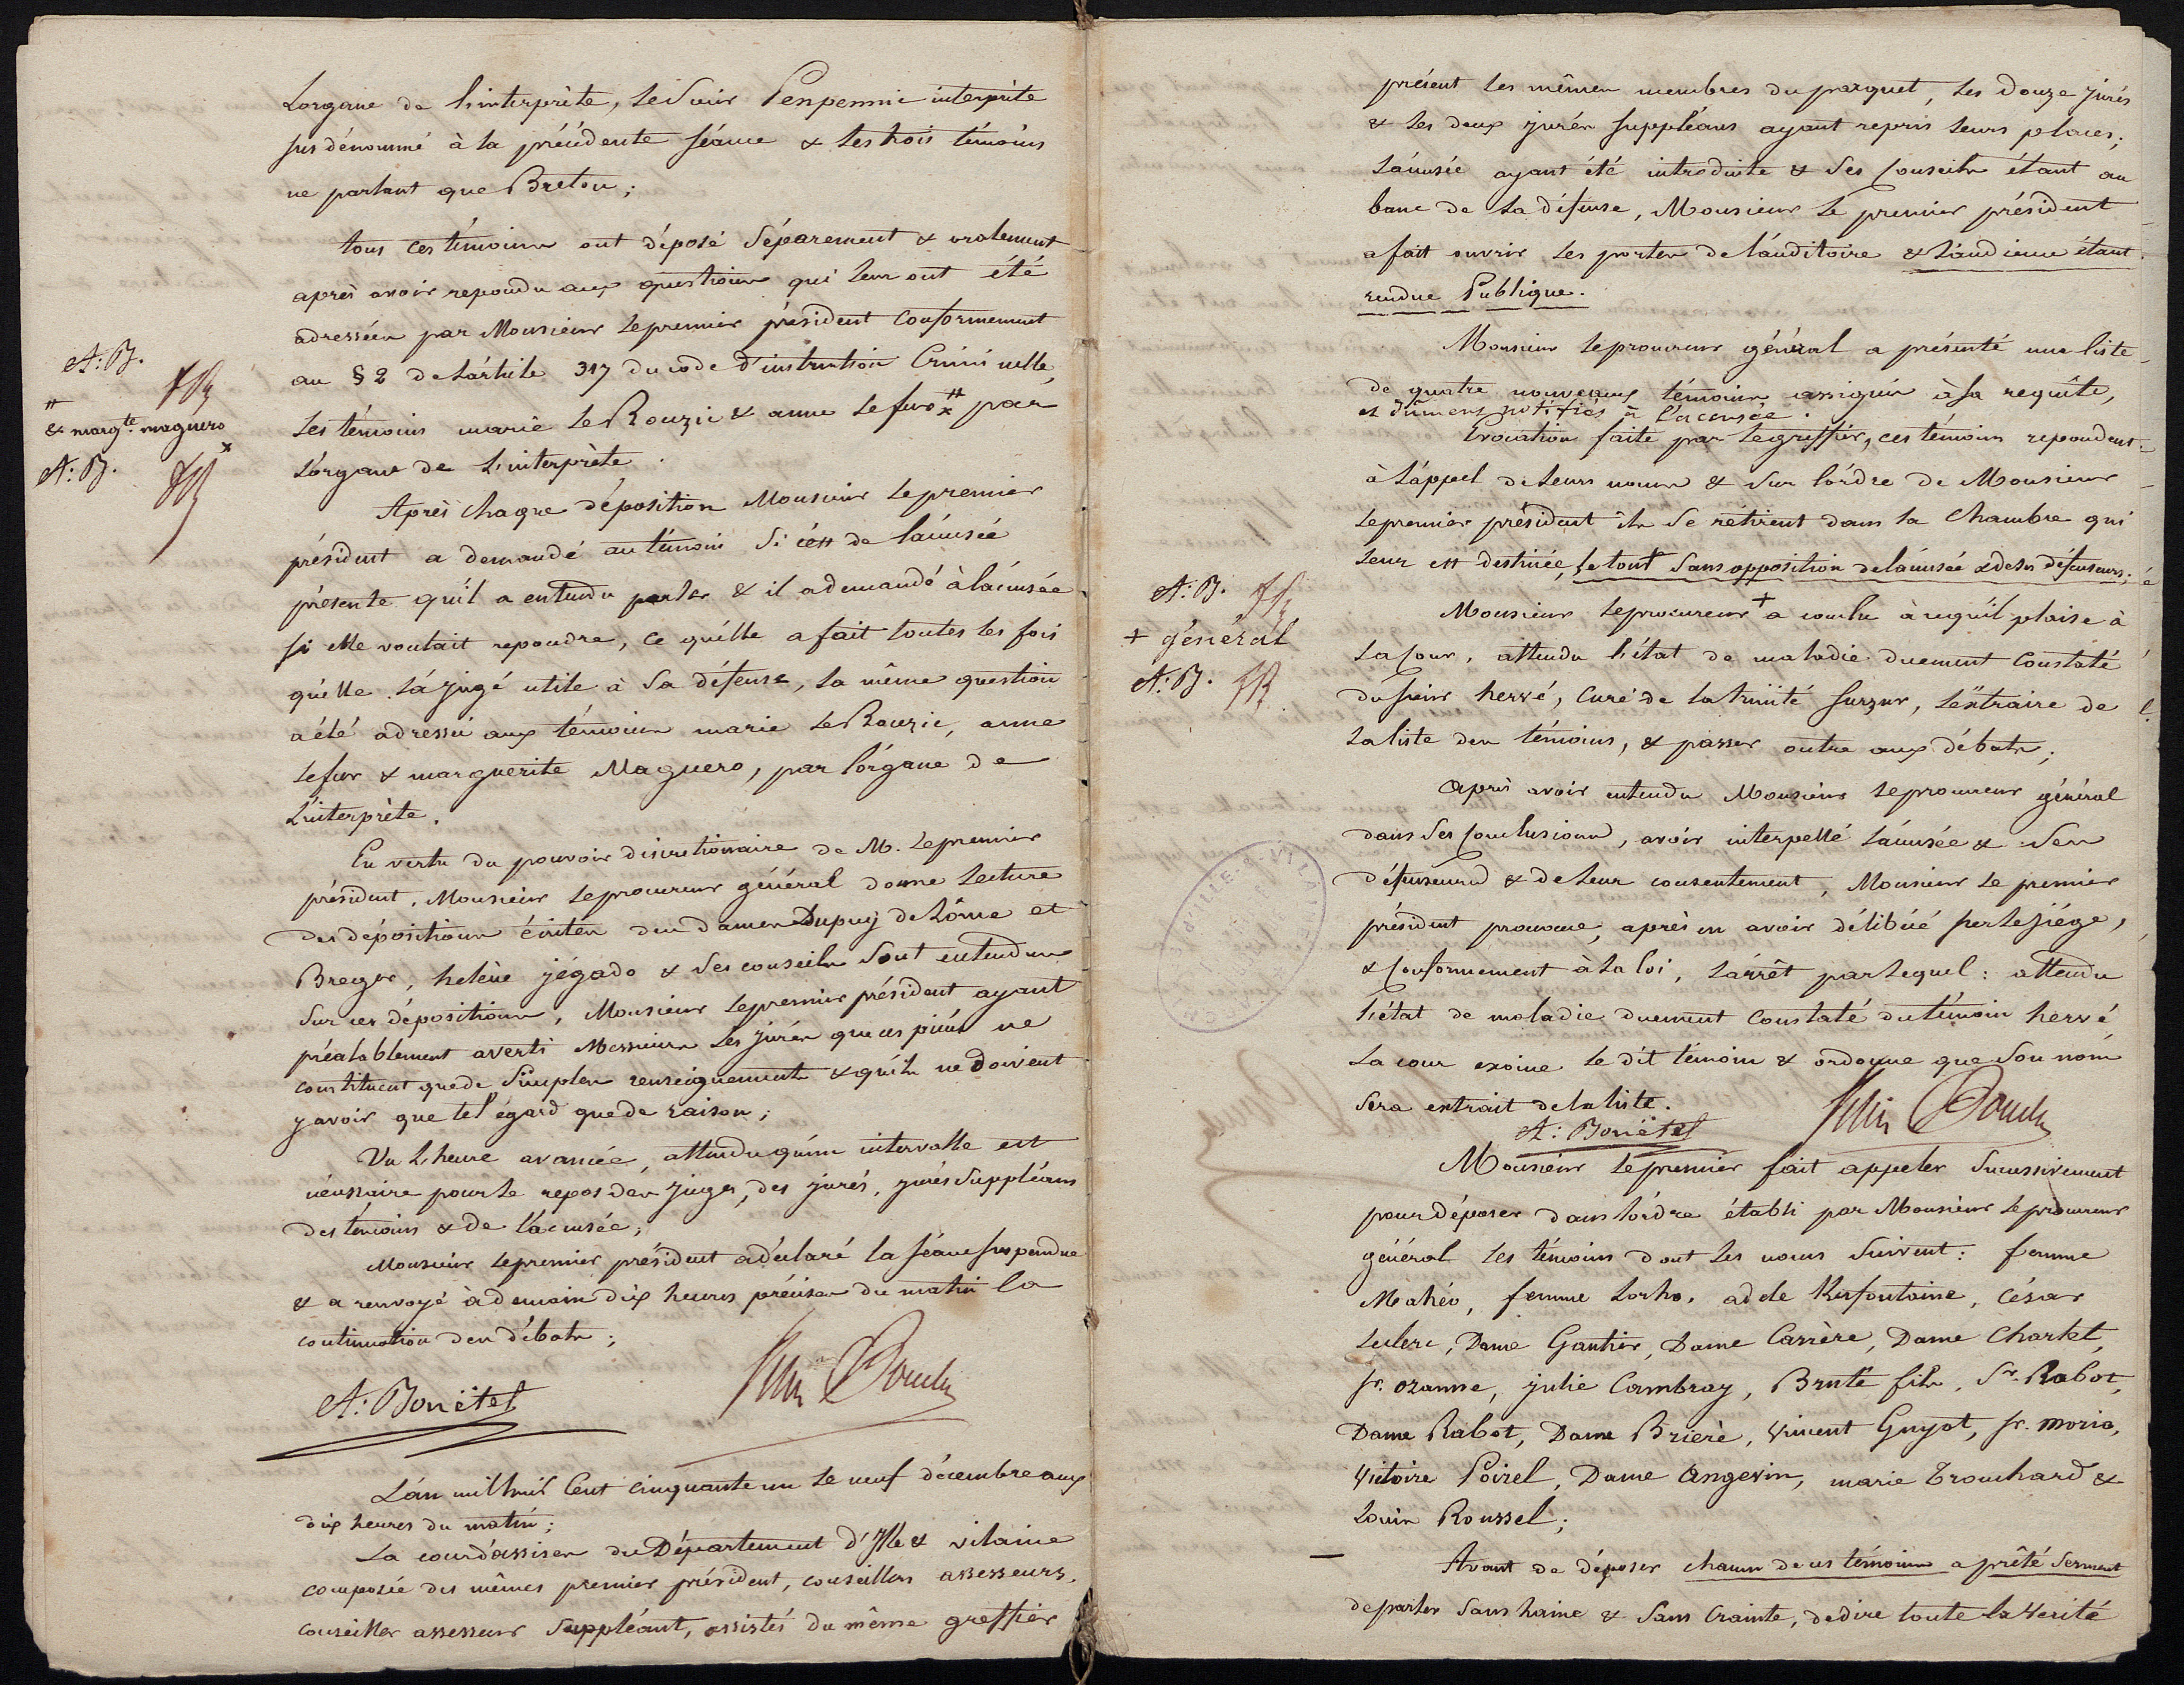 L'organe de l'interprète, le Sieur Penpennic interprète
sus dénommé à la précédente séance & les trois témoins
ne parlant que Breton;
tous ces témoins ont déposé Séparement & oralement
après avoir repondu aux questions qui leur ont été
adressées par Monsieur le premier président conformement
au § 2 de l'article 317 du code d'instruction Criminelle,
A: B.
# & margte. maguero
A: B.
les témoins marie Le Rouzic & anne Lefur # par
x
L'organe de L'interprète.
Après chaque déposition Monsieur le premier
président a demandé au témoin Si c'est de l'accusée
présente qu'il a entendu parler & il a demandé à l'accusée
si elle voulait repondre, ce qu'elle a fait toutes les fois
qu'elle l'a jugé utile à Sa défense, la même question
a été adressée aux témoins marie Le Rouzic, anne
Lefur & marguerite Maguero, par l'organe de
L'interprète.
En vertu du pouvoir discretionnaire de M. le premier
président, Monsieur le procureur général donne lecture
des dépositions écrites des dames Dupuy de Lôme et
Breger, helène jégado & Ses conseils Sont entendus
Sur ces dépositions, Monsieur le premier président ayant
préalablement averti Messieurs les jurés que ces pièces ne
constituent que de Simples renseignements & qu'ils ne doivent
y avoir que tel égard que de raison;
Vu L'heure avancée, attendu qu'un intervalle est
nécessaire pour le repos des juges, des jurés, jurés Suppléans
des témoins & de l'accusée;
Monsieur le premier président a déclaré la séance suspendue
& a renvoyé à demain dix heures précises du matin la
continuation des débats;
A: Bouëtel
L'an mil huit Cent cinquante un le neuf décembre aux
dix heures du matin;
La cour d'assises du Département d'Ille & vilaine
composée des mêmes premier président, conseillers assesseurs,
conseiller assesseur Suppléant, assistés du même greffier
présent les mêmes membres du parquet, les douze jurés
& les deux jurés suppléans ayant repris leurs places;
L'accusée ayant été introduite & Ses Conseils étant au
banc de la défense, Monsieur le premier président
a fait ouvrir les portes de l'auditoire & l'audience étant
rendue Publique.
Monsieur le procureur général a présenté une liste
de quatre nouveaux témoins assignés à sa requête,
et dûment notifiés à l'accusée.
Evocation faite par le greffier, ces témoins repondent
à l'appel de leurs noms & Sur l'ordre de Monsieur
le premier président ils Se rétirent dans la Chambre qui
leur est destinée, le tout Sans opposition de l'accusée & de ses défenseurs;
A: B.
+ général
A: B.
Monsieur le procureur + a conclu à ce qu'il plaise à
La Cour, attendu l'état de maladie duement Constaté
du sieur hervé, curé de la trinité surzur, l'extraire de
la liste des témoins, & passer outre aux débats;
Après avoir entendu Monsieur le procureur général
dans Ses Conclusions, avoir interpellé l'accusée & Ses
défenseurs & de leur consentement, Monsieur le premier
président prononce, après en avoir délibéré sur le siége,
& Conformement à la loi, l'arrêt par lequel: attendu
l'état de maladie duement Constaté du témoin hervé
La cour exoine le dit témoin & ordonne que Son nom
Sera extrait de la liste.
A: Bouëtel
Monsieur le premier fait appeler Successivement
pour déposer dans l'ordre établi par Monsieur le procureur
général les témoins dont les noms Suivent: femme
Mahéo, femme Lorho, adèle Kerfontaine, César
Leclerc, Dame Gautier, Dame Carrère, Dame Charlet,
sr. ozanne, julie Cambray, Brute fils, Sr. Rabot,
Dame Rabot, Dame Brière, Vincent Guyot, sr. morio,
Victoire Poirel, Dame Angevin, marie Trouchard &
Louis Roussel;
Avant de déposer chacun de ces témoins a prêté Serment
de parler Sans haine & Sans Crainte, de dire toute la Vérité